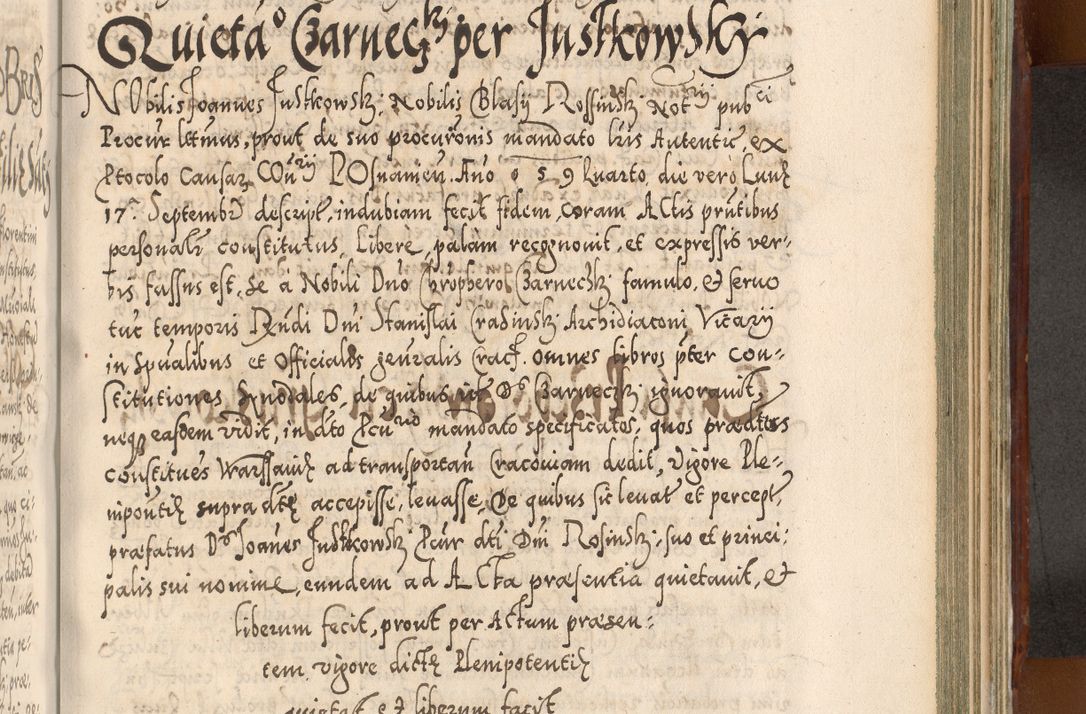 Quietao Czarnecki per Justkowski
Nobilis Joannes Justkowski Nobilis Blasij Rossinski Notrij pubci
Procur lttimus, prout de suo procuronis mandato lris Autentic, ex
Ptocolo Causaz Conrij Posnanien. Ano 059 Quarto, die vero Lunę
17a Septembr descript, indubiam fecit fidem, coram Actis pręntibus
personalr constitutus, Libere, palam recognovit, et expressis ver-
bis fassus est, se a Nobili Dno Chrophero Czarnecki famulo, et servo
tuc temporis Rndi Dni Stanislai Crasinski Archidiaconi Vicarij
in Spualibus et Officialis genralis Crac. omnes libros pter con-
stitutiones Synodales, de quibus id Ds Czarnecki ignoravit,
neqz easdem vidit, in dto Pcuris mandato specificatos, quos prædtus
constitues Warssavię ad transportan Cracoviam dedit, vigore Ple-
nipontię supra dtę accepisse, levasse, De quibus sic levat et percept,
præfatus Ds Joanes Justkowski Pcur dti Dni Rosinski, suo et princi-
palis sui nomine, eundem ad Acta præsentia quietavit, et
liberum fecit, prout per Actum præsen-
tem vigore dictę Plenipotentię
quietat et liberum facit